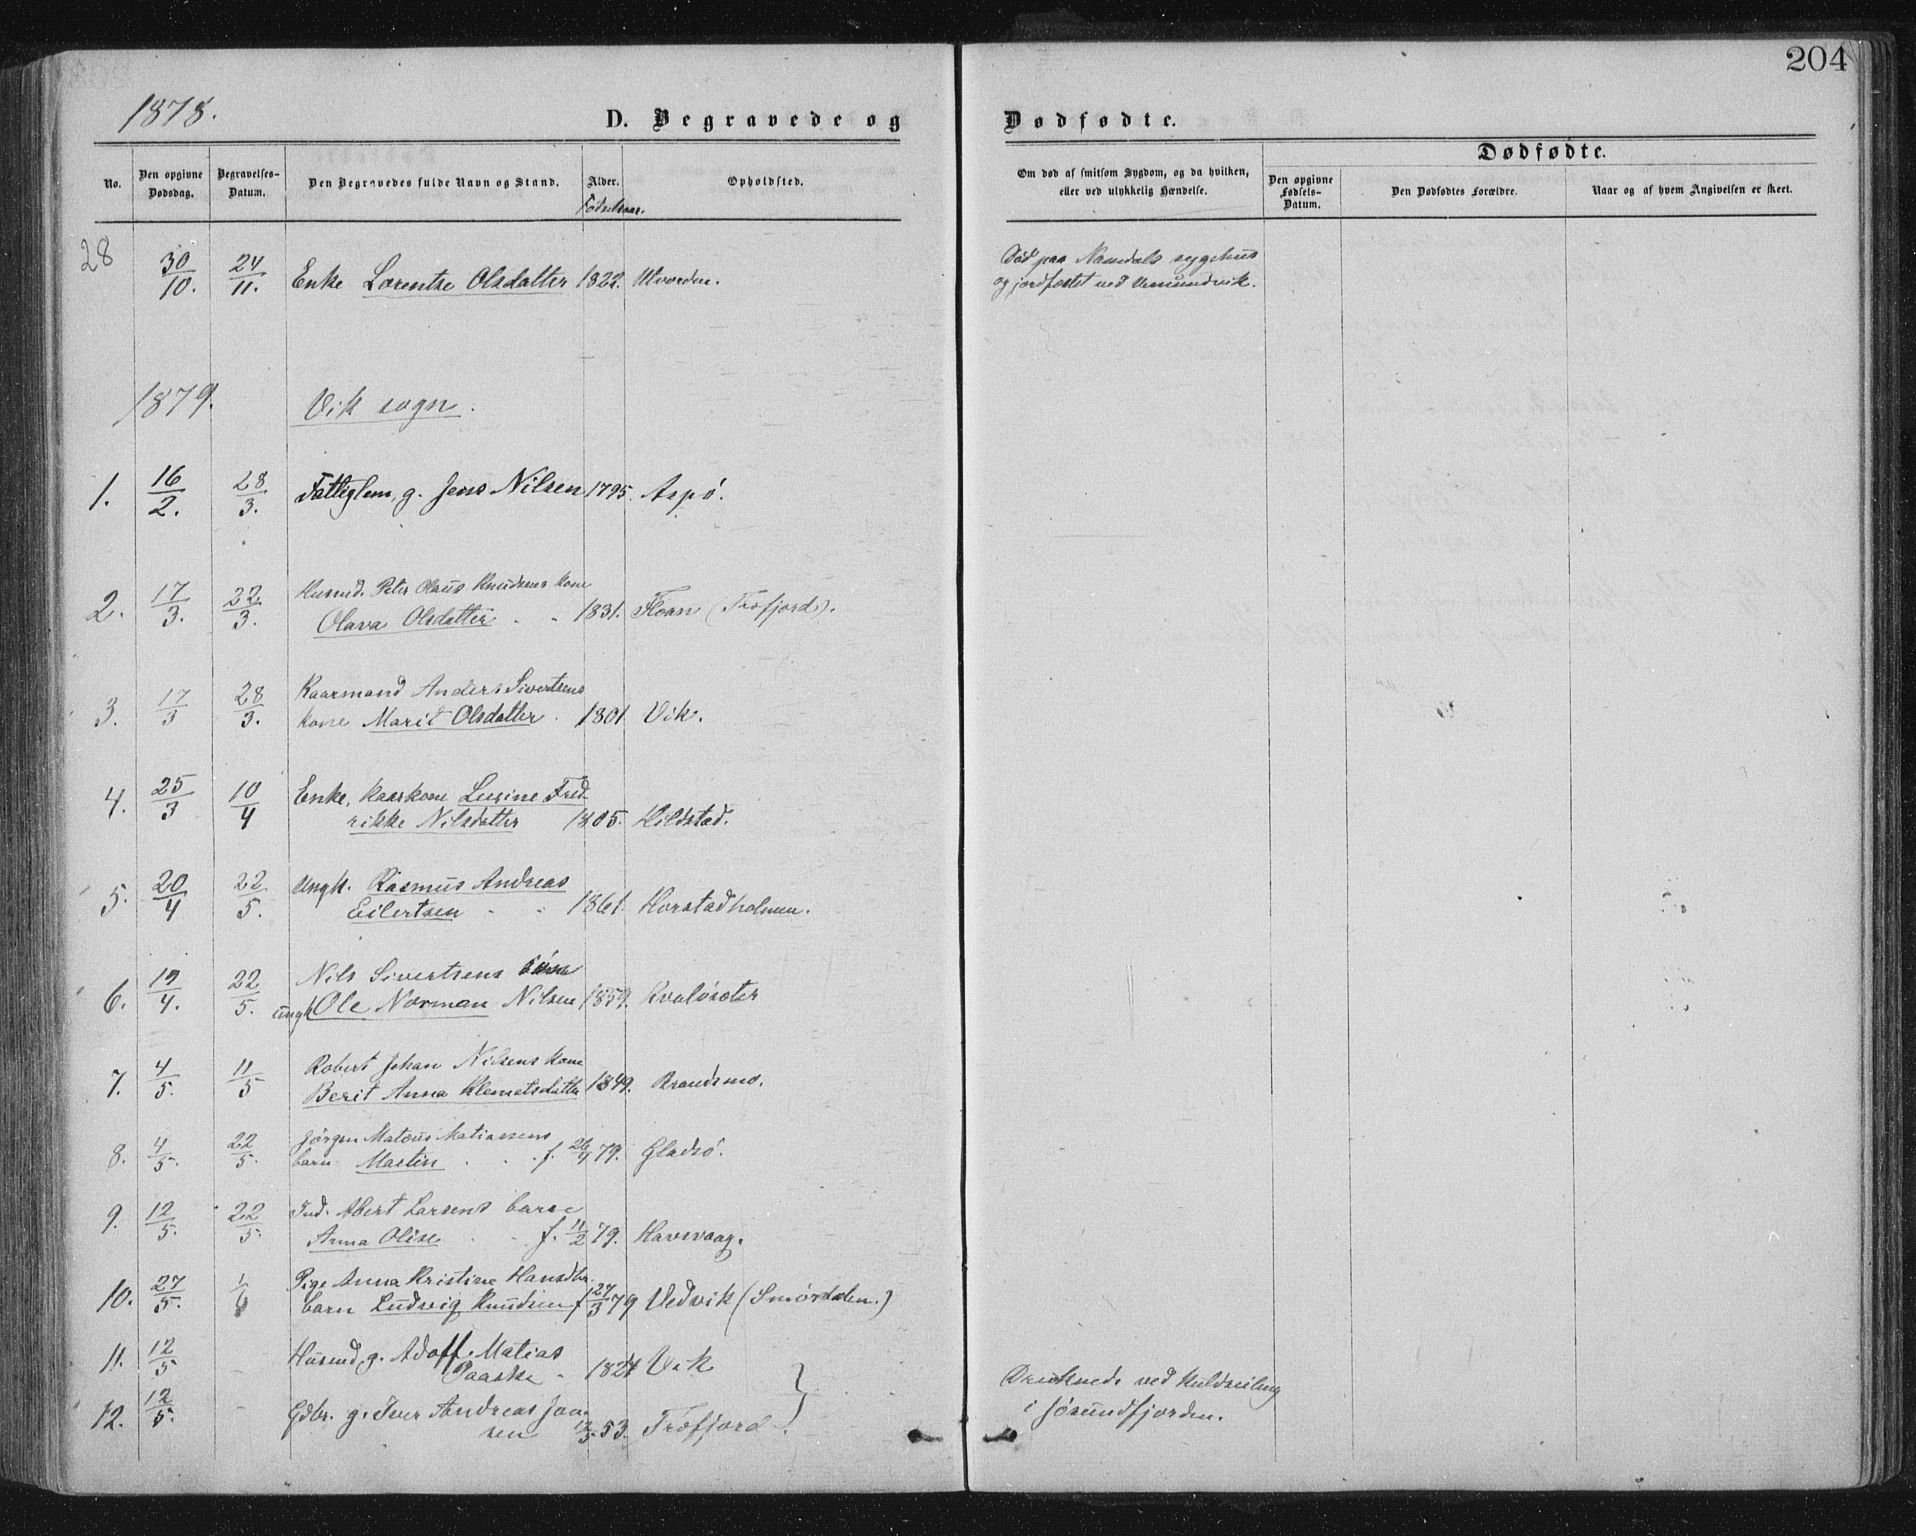 204
1878.
D. Begravede og Dødfødte.
Dødfødte.
No.
Den opgivne Dødsdag.
Begravelses-Datum.
Den Begravedes fulde Navn og Stand.
Alder.
Fødselsaar.
Opholdsted.
Om død af smitsom Sygdom, og da hvilken, eller ved ulykkelig Hændelse.
Den opgivne Fødsels-Datum.
Den Dødfødtes Forældre.
Naar og af hvem Angivelsen er skeet.
28 30/10. 24/11. Enke Lorentse Olsdatter 1822. Utvorden. Død paa Namdals sygehus
og jordfæstet ved Vemundvik.
1879. Vik sogn.
1. 16/2. 28/3. Fattiglem, g. Jens Nilsen 1795. Aspø.
2. 17/3. 22/3. Husmd. Peter Olaus Knudsens kone
Olava Olsdatter 1831. Floan (Trofjord).
3. 17/3 28/3. Kaarmand Anders Sivertsens
kone Marit Olsdatter. 1801 Vik.
4. 25/3 10/4 Enke, kaarkone Lusine Fred-
rikke Nilsdatter 1805. Kildstad.
5. 20/4 22/5. Ungk. Rasmus Andreas
Eilertsen 1861. Horstadholmen.
6. 22/5. Nils Sivertsens
ungk Ole Norman Nilsen 1859. Kvaløsæter
7. 4/5. 11/5 Robert Johan Nilsens kone
Berit Anna Klemetsdatter 1849. Brandsmo.
8. 4/5. 22/5. Jørgen Mataus Matiassens
barn Martin f. 26/4 79. Gladsø.
9. 12/5. 22/5. Ind. Albert Larsens barn
Anna Olise f. 11/2 79. Havsvaag.
10. 27/5. 1/6 Pige Anna Kristine Hansdtr.
barn Ludvig Knudsen f 27/3 79 Vedvik (Smørdalen.)
11. 12/5 - Husmd, g. Adolf Matias
Paaske 1824 Vik Druknede ved Kuldseiling
12. 12/5. - Gdbr. g. Iver Andreas Jon-
sen 12/5 53. Trofjord i Jøsundfjorden.